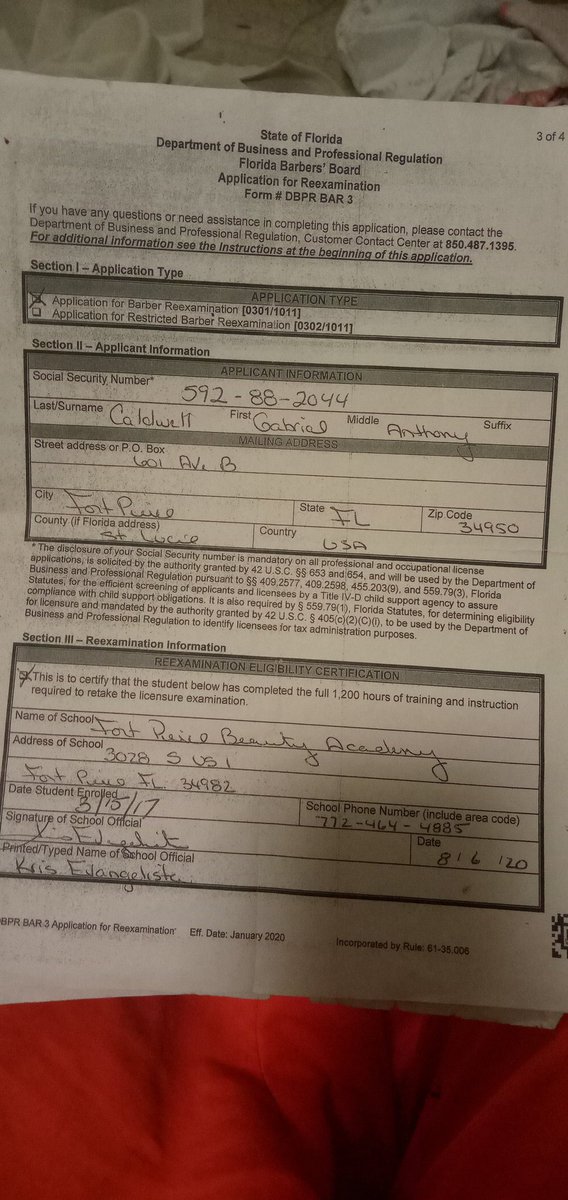 State of Florida
3 of 4
Department of Business and Professional Regulation
Florida Barbers' Board
Application for Reexamination
Form # DBPR BAR 3
If you have any questions or need assistance in completing this application, please contact the
Department of Business and Professional Regulation, Customer Contact Center at 850.487.1395.
For additional information see the Instructions at the beginning of this application.
Section I – Application Type
APPLICATION TYPE
Application for Barber Reexamination [0301/1011]
Application for Restricted Barber Reexamination [0302/1011]
Section II – Applicant Information
APPLICANT INFORMATION
Social Security Number*
592-88-2044
Last/Surname Caldwell First Gabriel Middle Anthony Suffix
MAILING ADDRESS
Street address or P.O. Box
601 Ave B
City Fort Pierce State FL Zip Code 34950
County (if Florida address) St Lucie Country USA
* The disclosure of your Social Security number is mandatory on all professional and occupational license
applications, is solicited by the authority granted by 42 U.S.C. §§ 653 and 654, and will be used by the Department of
Business and Professional Regulation pursuant to §§ 409.2577, 409.2598, 455.203(9), and 559.79(3), Florida
Statutes, for the efficient screening of applicants and licensees by a Title IV-D child support agency to assure
compliance with child support obligations. It is also required by § 559.79(1), Florida Statutes, for determining eligibility
for licensure and mandated by the authority granted by 42 U.S.C. § 405(c)(2)(C)(i), to be used by the Department of
Business and Professional Regulation to identify licensees for tax administration purposes.
Section III – Reexamination Information
REEXAMINATION ELIGIBILITY CERTIFICATION
This is to certify that the student below has completed the full 1,200 hours of training and instruction
required to retake the licensure examination.
Name of School Fort Pierce Beauty Academy
Address of School
3028 S US 1
Fort Pierce FL 34982
Date Student Enrolled School Phone Number (include area code)
3/15/17 772-464-4885
Signature of School Official Date
8/6/20
Printed/Typed Name of School Official
Kris Evangelista
DBPR BAR 3 Application for Reexamination Eff. Date: January 2020 Incorporated by Rule: 61-35.006